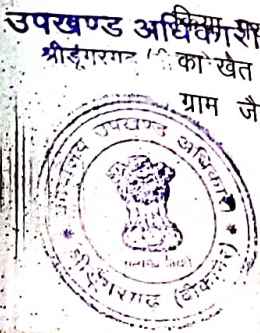 उपखण्ड अधिकारी
श्रीडूंगरगढ़
का खेत
ग्राम जै
कार्यालय उपखण्ड अधिकारी
सत्यमेव जयते
श्रीडूंगरगढ़ (बीकानेर)